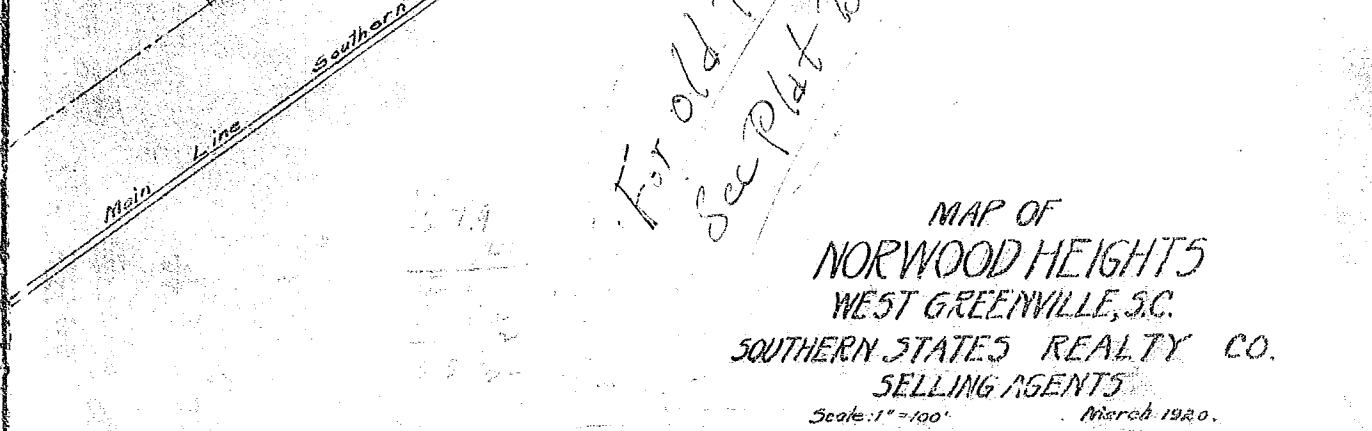 Main Line Southern
For old
See Plat
MAP OF
NORWOOD HEIGHTS
WEST GREENVILLE, S.C.
SOUTHERN STATES REALTY CO.
SELLING AGENTS
Scale: 1" = 100' March 1920.